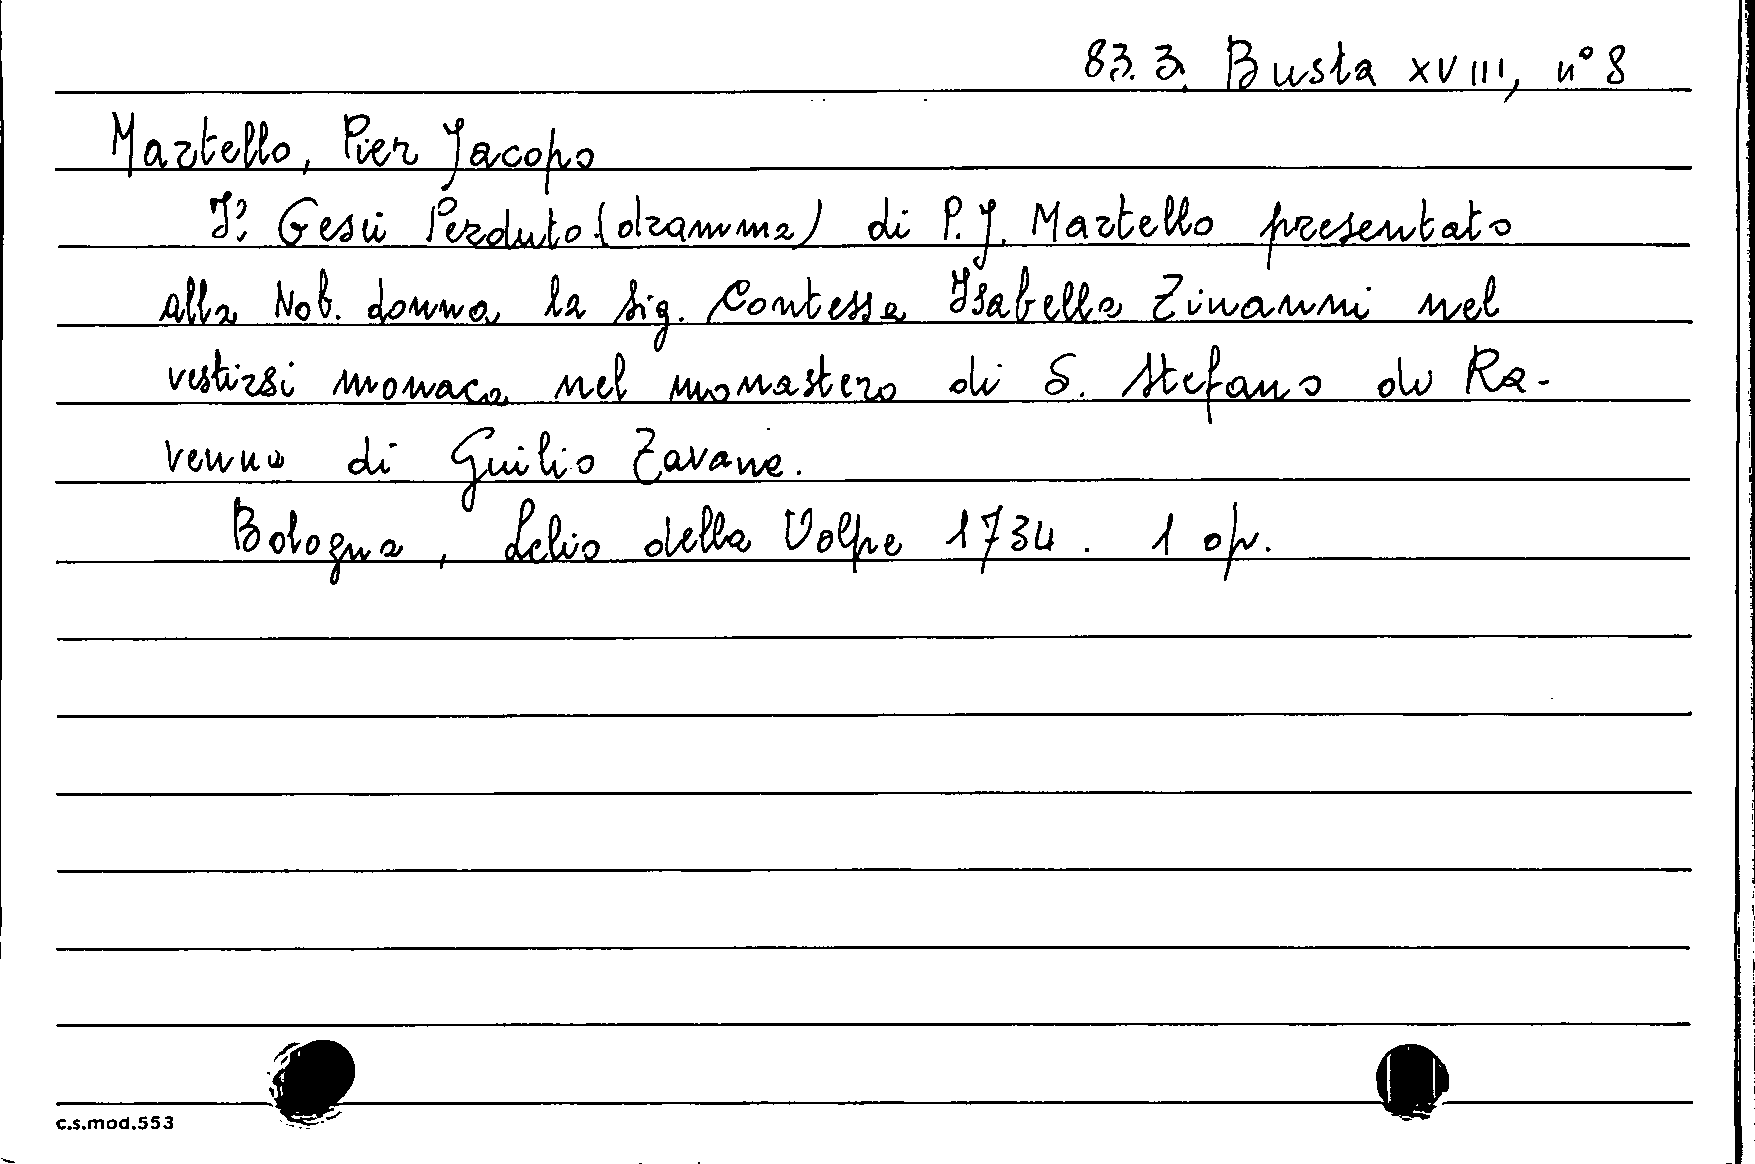 83.3. Busta XVIII, n° 8
Martello, Pier Jacopo
Gesù Perduto (dramma) di P.J. Martello presentato
alla Nob. donna la Sig. Contessa Isabella Zinanni nel
vestirsi monaca nel monastero di S. Stefano di Ra-
venna di Guilio Zavana.
Bologna, Lelio della Volpe 1734. 1 op.
c.s.mod.553